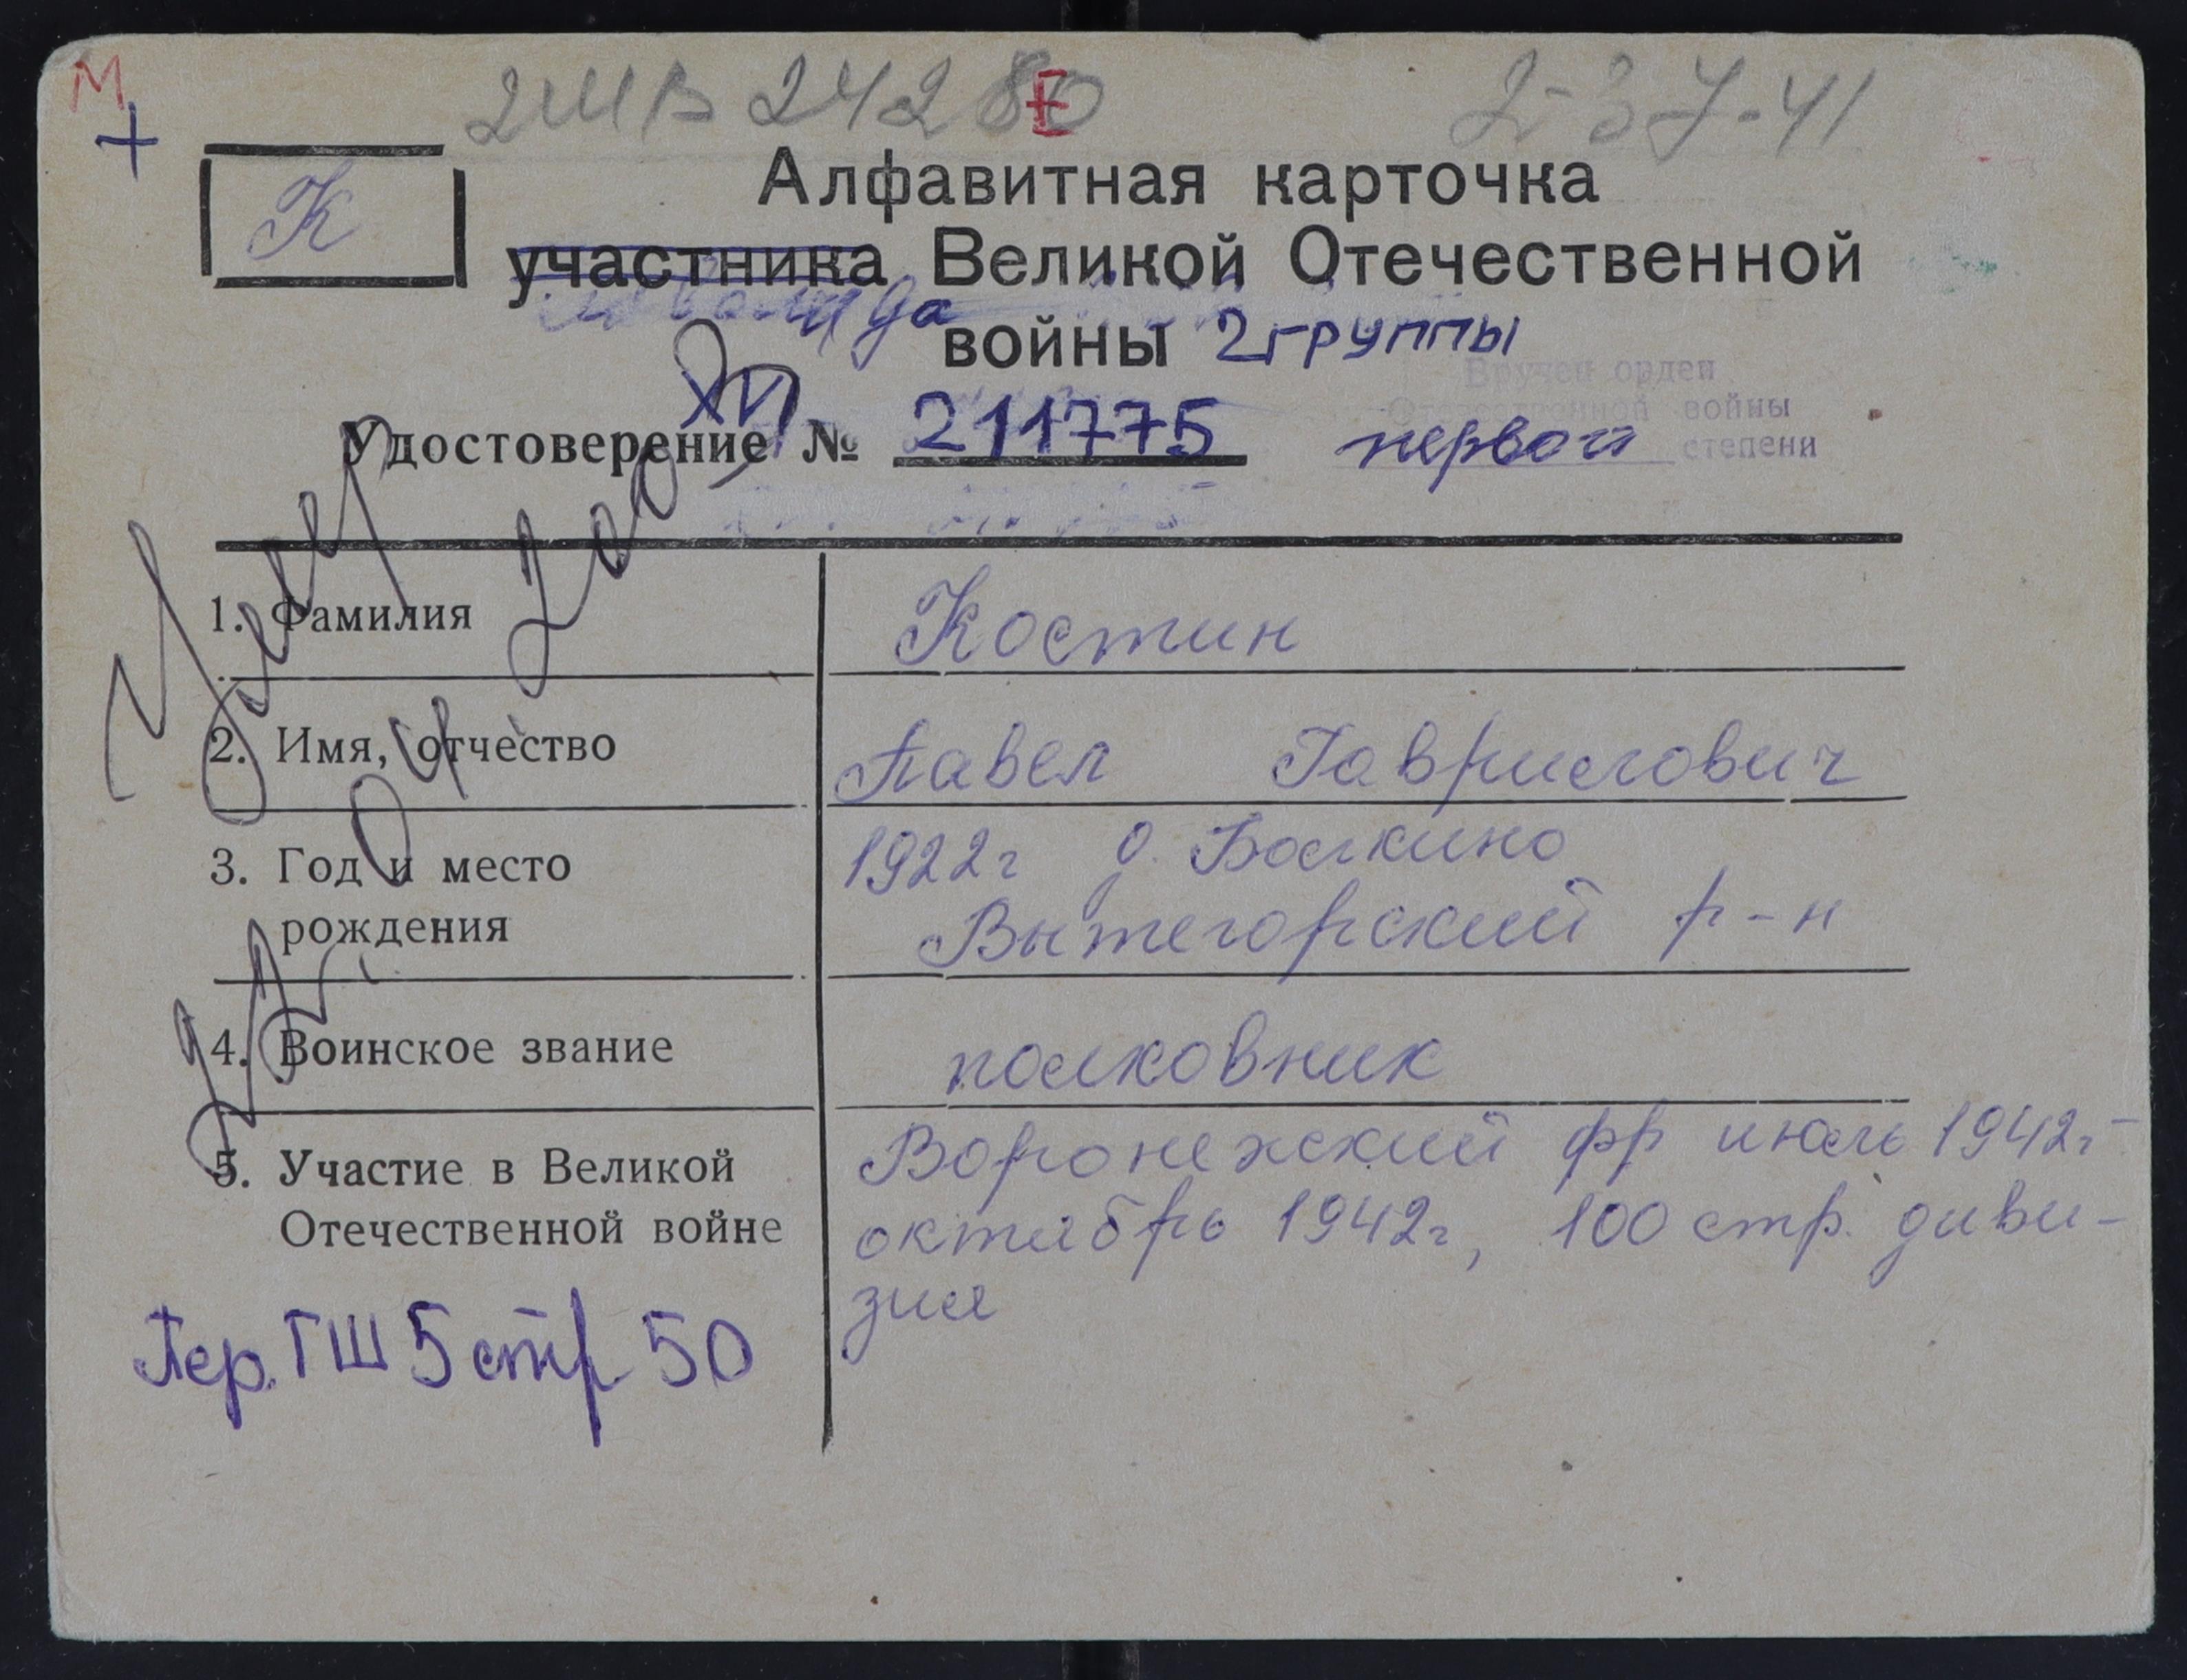 М
+
2МВ 24280
Е
2-37-41
К
Алфавитная карточка
участника Великой Отечественной
инвалида
войны 2 группы
Вручен орден
Отечественной войны
первой степени
XVI
Удостоверение № 211775
1. Фамилия Костин
2. Имя, отчество Павел Гавриилович
3. Год и место 1922г д. Болкино
рождения Вытегорский р-н
4. Воинское звание полковник
5. Участие в Великой Воронежский фр июль 1942г-
Отечественной войне октябрь 1942г, 100 стр. диви-
зия
Пер. ГШ 5 стр 50